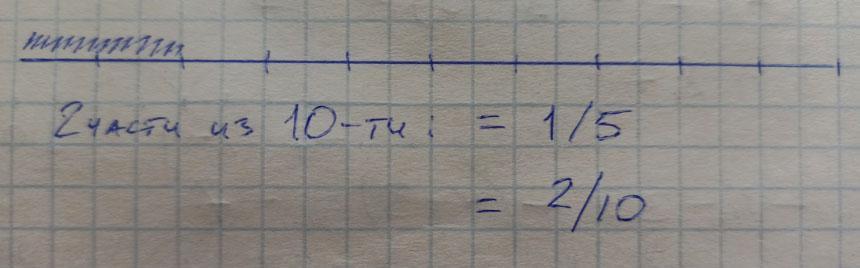 2 части из 10-ти: = 1/5
= 2/10